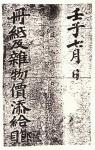 壬子七月日
冊紙及雜物價添給目